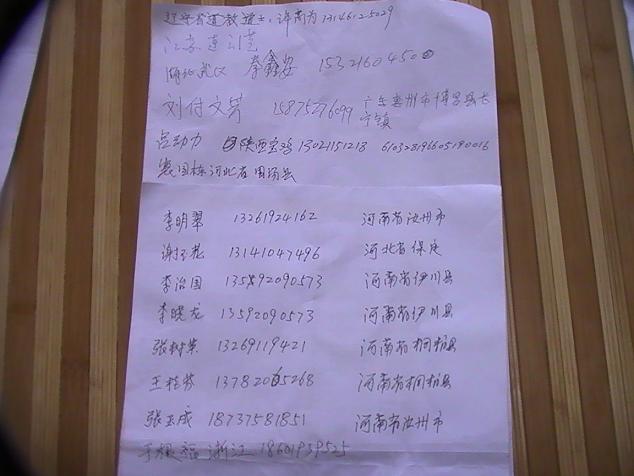 道教道士 许南为 13146125029
江苏连云港
湖北武汉 秦鑫安 1532160450
刘付文芳 15875276099 广东惠州市博罗县长宁镇
陕西宝鸡 13021151218 610328196605190016
国栋 河北省
李明翠 13261924162 河南省汝州市
谢 13141047496 河北省保定
李治国 13592090573 河南省伊川县
李晓龙 13592090573 河南省伊川县
张树英 13269119421 河南省桐柏县
王桂芬 13782005268 河南省桐柏县
张玉成 18737581851 河南省汝州市
于根 浙江 18601939525